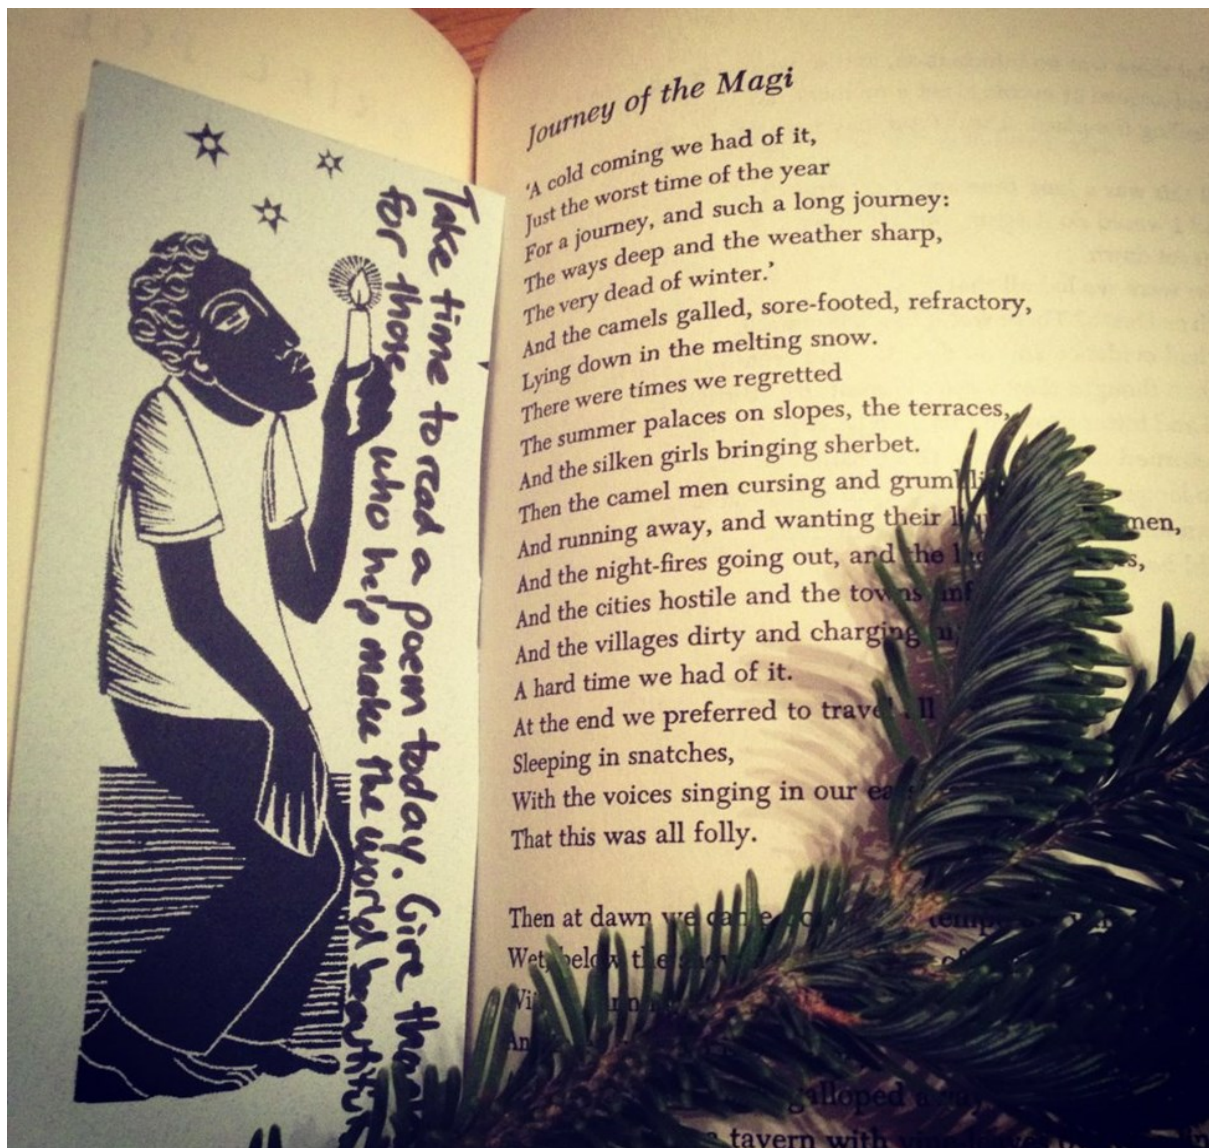 Take time to read a poem today. Give
for those who help make the world
Journey of the Magi
'A cold coming we had of it,
Just the worst time of the year
For a journey, and such a long journey:
The ways deep and the weather sharp,
The very dead of winter.'
And the camels galled, sore-footed, refractory,
Lying down in the melting snow.
There were times we regretted
The summer palaces on slopes, the terraces,
And the silken girls bringing sherbet.
Then the camel men cursing and
And running away, and wanting their
And the night-fires going out, and the
And the cities hostile and the towns
And the villages dirty and charging
A hard time we had of it.
At the end we preferred to travel
Sleeping in snatches,
With the voices singing in our
That this was all folly.
Then at dawn we
Wet, below the
galloped
tavern with